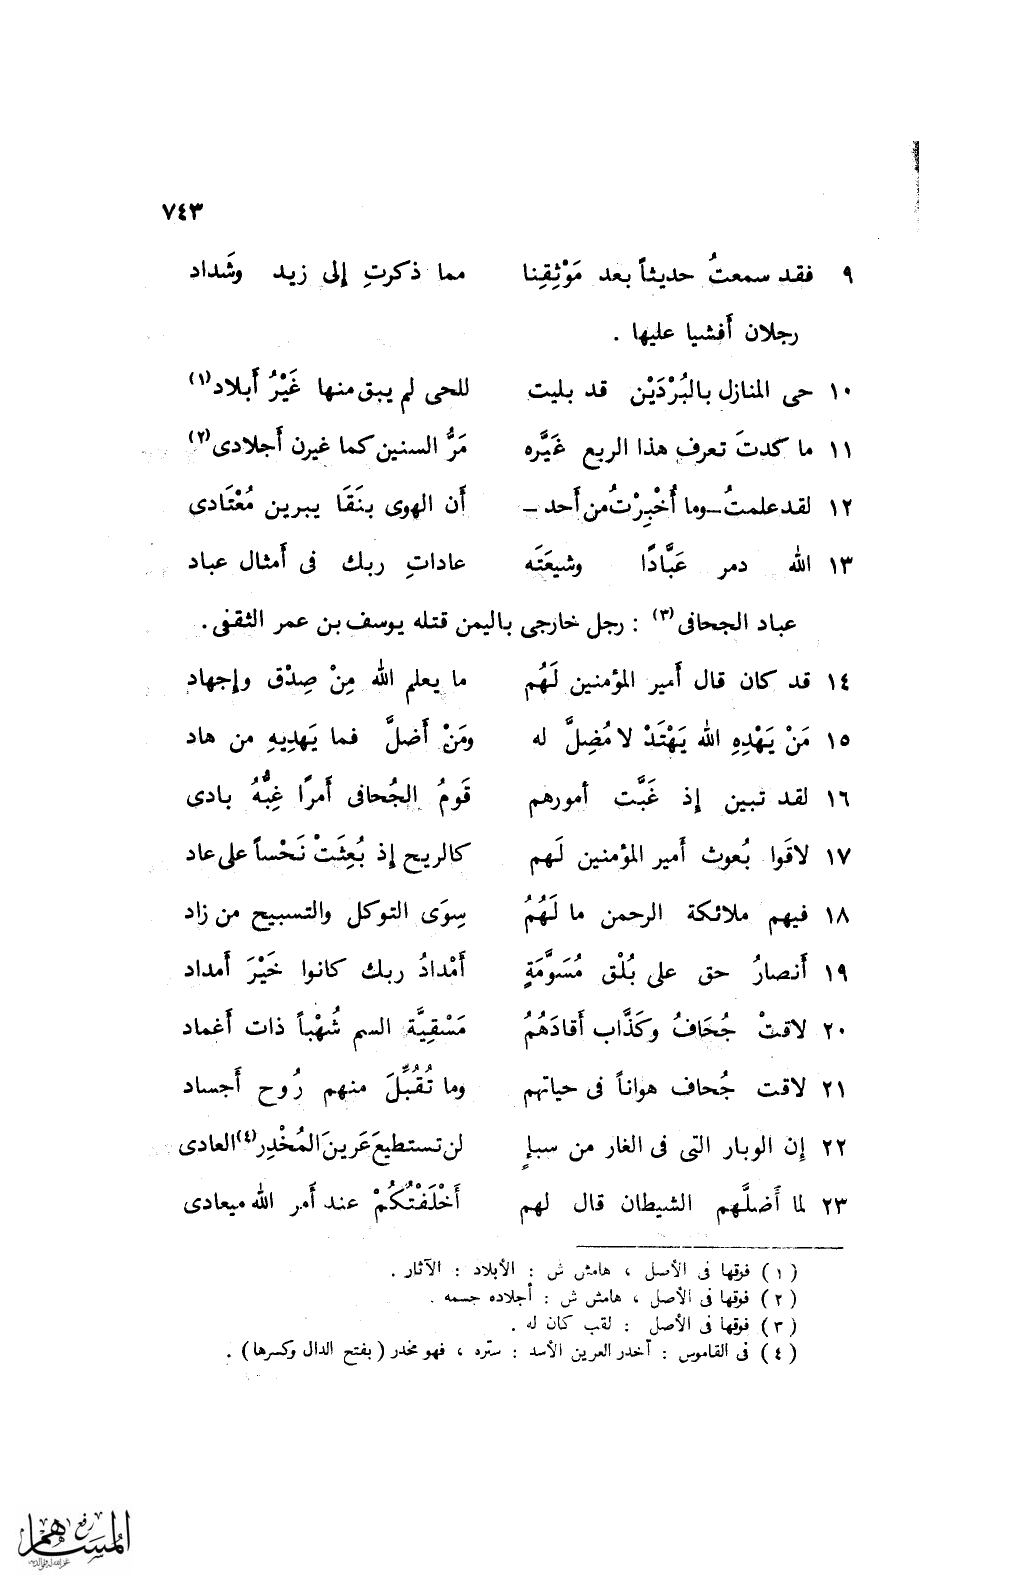 ٧٤٣
٩ فقد سمعتُ حديثاً بعد مَوْثِقِنا مما ذكرتِ إلى زيد وشَداد
رجلان أَفشيا عليها .
١٠ حى المنازل بالبُرْدَيْن قد بليت للحى لم يبق منها غَيْرُ أَبلاد(١)
١١ ما كدتَ تعرف هذا الربع غَيَّره مَرُّ السنين كما غيرن أَجلادى(٢)
١٢ لقد علمتُ – وما أُخْبِرْتُ من أَحد – أَن الهوى بنَقَا يبرين مُعْتَادى
١٣ الله دمر عَبَّادًا وشيعَتَه عاداتِ ربك فى أَمثال عباد
عباد الجحافى(٣) : رجل خارجى باليمن قتله يوسف بن عمر الثقفى .
١٤ قد كان قال أَمير المؤمنين لَهُم ما يعلم الله مِنْ صِدْق وإجهاد
١٥ مَنْ يَهْدِهِ الله يَهْتَدْ لا مُضِلَّ له ومَنْ أَضلَّ فما يَهدِيهِ من هاد
١٦ لقد تبين إذ غَبَّت أمورهم قَومُ الجُحافى أَمرًا غِبُّهُ بادى
١٧ لاقَوا بُعوث أَمير المؤمنين لَهم كالريح إذ بُعِثَتْ نَحْساً على عاد
١٨ فيهم ملائكة الرحمن ما لَهُمُ سِوَى التوكل والتسبيح من زاد
١٩ أَنصارُ حق على بُلْق مُسَوَّمَةٍ أَمْدادُ ربك كانوا خَيْرَ أَمداد
٢٠ لاقتْ جُحَافُ وكَذَّاب أَقادَهُمُ مَسْقِيَّة السم شُهْباً ذات أَغماد
٢١ لاقت جُحاف هواناً فى حياتهم وما تُقُبِّلَ منهم رُوح أَجساد
٢٢ إن الوبار التى فى الغار من سبإٍ لن تستطيعَ عَرينَ المُخْدِر(٤) العادى
٢٣ لما أَضلَّهم الشيطان قال لهم أَخْلَفْتُكُمْ عند أَمر الله ميعادى
(١) فوقها فى الأصل ، هامش ش : الأبلاد : الآثار .
(٢) فوقها فى الأصل ، هامش ش : أجلاده جسمه .
(٣) فوقها فى الأصل : لقب كان له .
(٤) فى القاموس : أخدر العرين الأسد : ستره ، فهو مخدر (بفتح الدال وكسرها) .